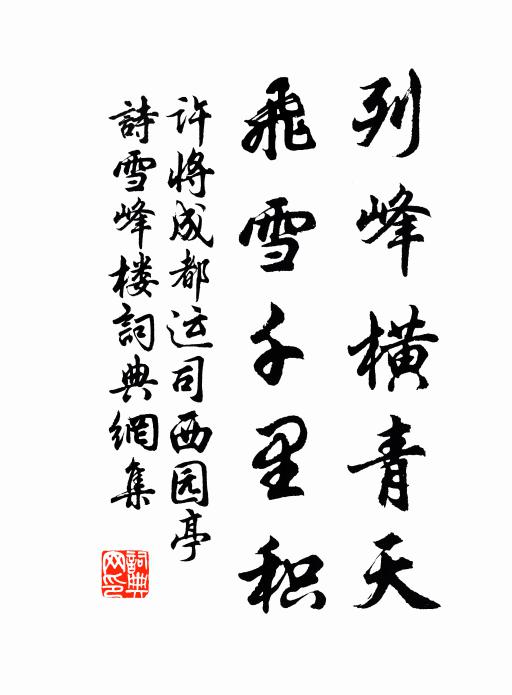 列峰横青天
飛雪千里积
许将成都运司西园亭
詩雪峰楼詞典網集
詞典网印